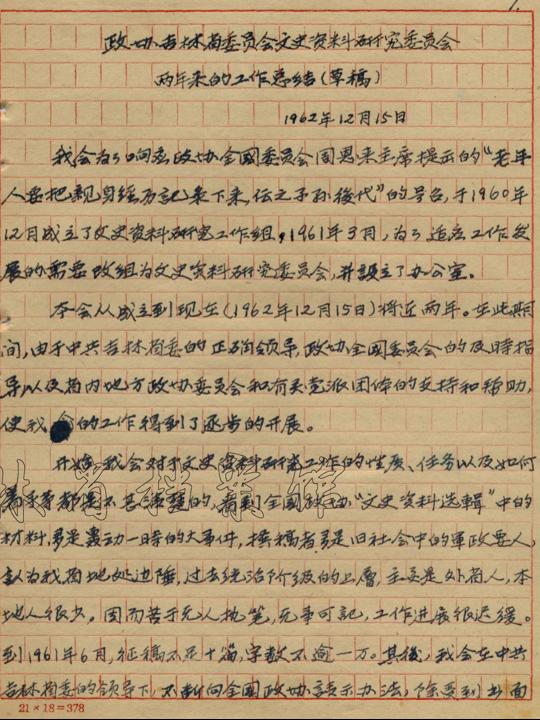 1.
政协吉林省委员会文史资料研究委员会
两年来的工作总结(草稿)
1962年12月15日
我会为了响应政协全國委员会周恩来主席提示的“老年
人要把親身经历記录下来,传之子孙後代”的号召,于1960年
12月成立了文史資料研究工作组,1961年3月,为了适应工作发
展的需要改组为文史資料研究委员会,并設立了办公室。
本会从成立到现在(1962年12月15日)将近两年。在此期
间,由于中共吉林省委的正确领导,政协全國委员会的及時指
导以及省内地方政协委员会和有关党派团体的支持和帮助,
使我会的工作得到了逐步的开展。
开始,我会对于文史資料研究工作的性质、任务以及如何
着手等都是不甚清楚的,看到全國政协“文史資料选輯”中的
材料,多是轰动一時的大事件,撰稿者多是旧社会中的軍政要人,
認为我省地处边陲,过去统治阶级的上層,主要是外省人,本
地人很少。因而苦于无人执笔,无事可記,工作进展很迟缓。
到1961年6月,征稿不足十篇,字数不逾一万。其後,我会在中共
吉林省委的领导下,不断向全國政协請示办法,除受到书面
21×18=378
林省档案馆